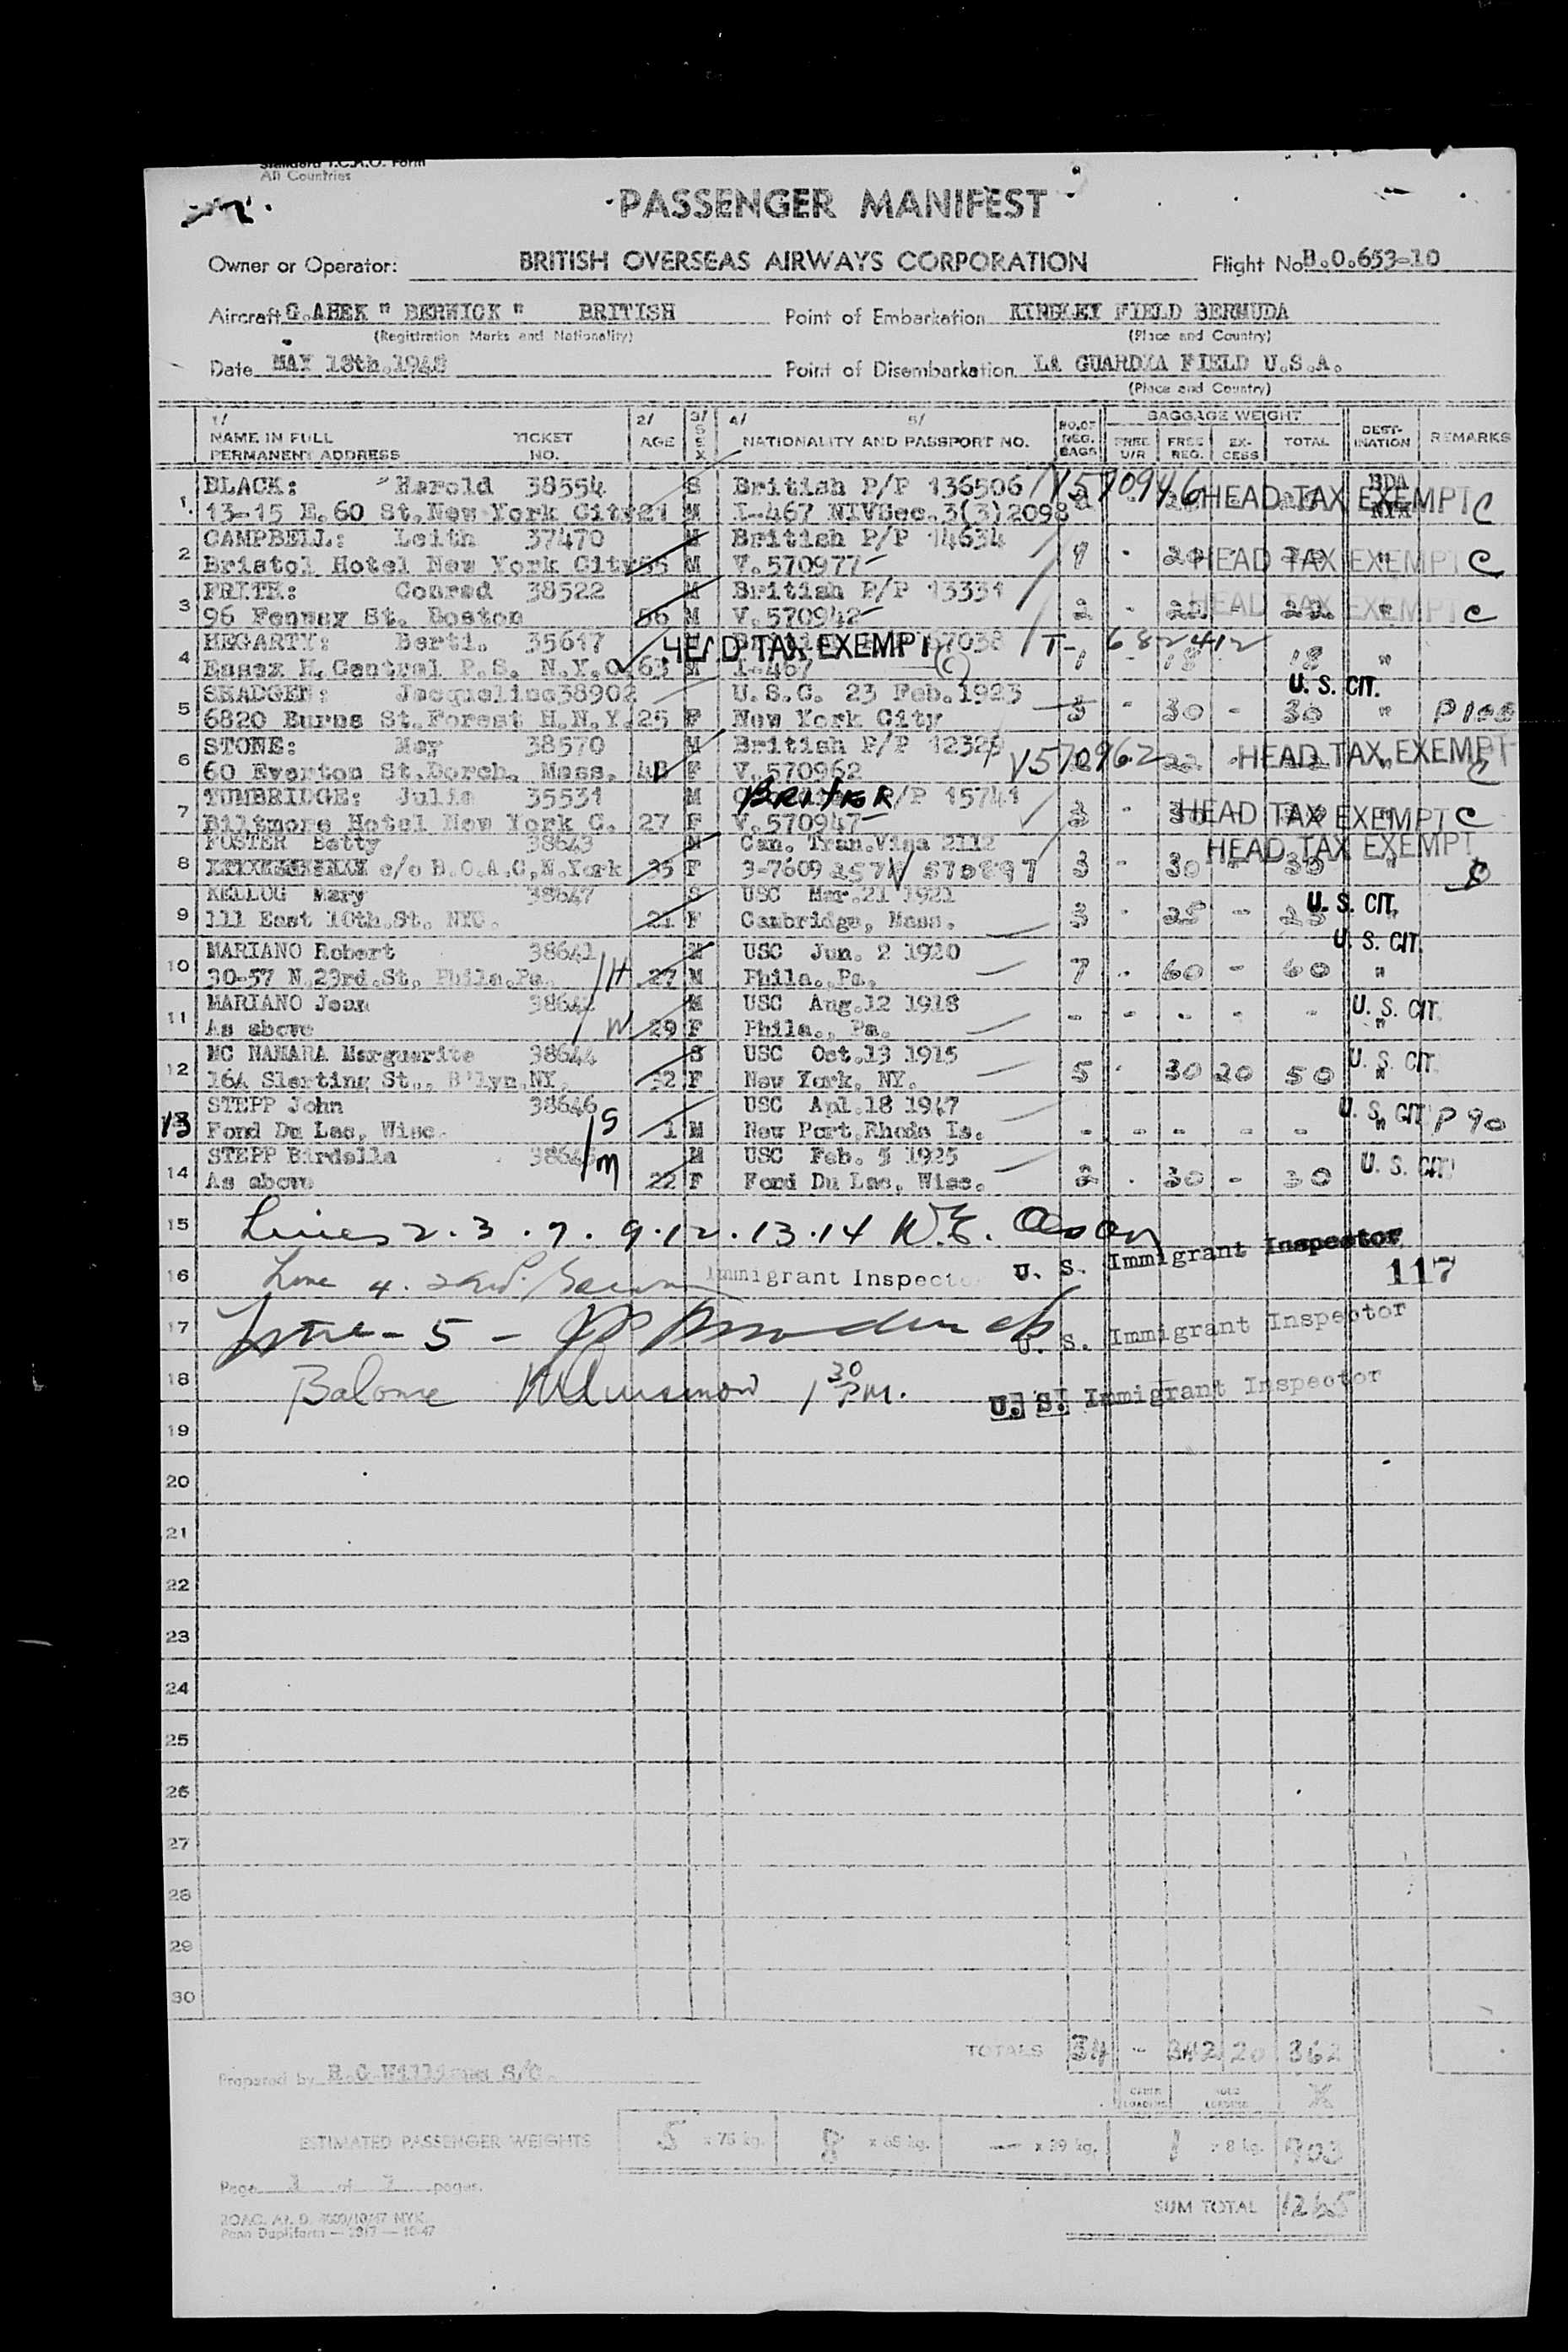 Standard I.C.A.O. Form
All Countries
PASSENGER MANIFEST
Owner or Operator: BRITISH OVERSEAS AIRWAYS CORPORATION Flight No B.O.653-10
Aircraft G.AHEK " BERWICK " BRITISH Point of Embarkation KINDLEY FIELD BERMUDA
(Registration Marks and Nationality) (Place and Country)
Date MAY 18th.1948 Point of Disembarkation LA GUARDIA FIELD U.S.A.
(Place and Country)
1/ 2/ 3/ 4/ 5/ BAGGAGE WEIGHT
NAME IN FULL TICKET AGE SEX NATIONALITY AND PASSPORT NO. NO.OF REG. BAGS FREE U/R FREE REG. EX-CESS TOTAL DEST-INATION REMARKS
PERMANENT ADDRESS NO.
BLACK: Harold 38554 S British P/P 136506 V570946 BDA
1. 13-15 E.60 St.New York City 21 M I-467 NIVSec.3(3)2098 2 HEAD TAX EXEMPT C
CAMPBELL: Leith 37470 M British P/P 14634
2 Bristol Hotel New York City 55 M V.570977 1 - HEAD TAX EXEMPT " C
FRITH: Conrad 38522 M British P/P 13331
3 96 Fenway St. Boston 66 M V.570942 2 - 22 - 22 HEAD TAX EXEMPT " C
HEGARTY: Berti. 35617 HEAD TAX EXEMPT (C) 7038 T- 682412
4 Essex H.Central P.S. N.Y.C. 63 M I-467 1 - 18 18 "
SKADGEN: Jacqueline 38902 U.S.C. 23 Feb.1923 U. S. CIT.
5 6820 Burns St.Forest H.N.Y. 25 F New York City 3 - 30 - 30 "
STONE: May 38570 M British P/P 12329 V570962
6 60 Everton St.Dorch. Mass. F V.570962 22 - HEAD TAX EXEMPT " C
TUMBRIDGE: Julia 35531 M BRITISH P/P 15741
7 Biltmore Hotel New York C. 27 F V.570947 3 - HEAD TAX EXEMPT " C
FOSTER Betty 38643 M Can. Tran.Visa 2112 HEAD TAX EXEMPT
8 c/o B.O.A.C,N.York 35 F 3-7609 3 - 30 - 30 "
KELLOG Mary 38647 S USC Mar.21 1921 U. S. CIT.
9 111 East 10th.St. NYC. 21 F Cambridge, Mass. 3 - 25 - 25
MARIANO Robert 38641 M USC Jun. 2 1920 U. S. CIT.
10 30-57 N.23rd.St, Phila.Pa. H 27 M Phila., Pa. 7 - 60 - 60 "
MARIANO Jean 38642 M USC Aug.12 1918 U. S. CIT.
11 As above W 29 F Phila., Pa. - - - - - "
MC NAMARA Marguerite 38644 S USC Oct.13 1915 U. S. CIT.
12 16A Slerting St., B'lyn.NY. 32 F New York, NY. 5 - 30 20 50 "
STEPP John 38646 S USC Apl.18 1947 U. S. CIT P 90
13 Fond Du Lac, Wisc. 1 M New Port,Rhode Is. - - - - - "
STEPP Birdella 38645 M USC Feb. 5 1925 U. S. CIT.
14 As above m 22 F Fond Du Lac, Wisc. 2 - 30 - 30
15 Lines 2. 3. 7. 9. 12. 13. 14 W.E. U. S. Immigrant Inspector
16 Line 4. Immigrant Inspector 117
17 Line - 5 - U. S. Immigrant Inspector
18 Balance 1 30 PM. U. S. Immigrant Inspector
19
20
21
22
23
24
25
26
27
28
29
30
TOTALS 34 - 342 20 362
Prepared by R.C. Williams S/C.
CABIN LOADING HOLD LOADING X
ESTIMATED PASSENGER WEIGHTS 5 x 76 kg. 8 x 65 kg. — x 39 kg. 1 x 8 kg. 903
Page of pages.
SUM TOTAL 1265
BOAC. Af. D. 4000/10/47 NYK.
Penn Dupliform — 2917 — 10-47